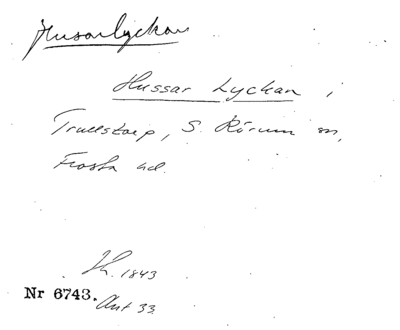 Husarlyckan
Hussar Lyckan i
Trulstorp, S. Rörum sn,
Frosta hd.
Lh. 1843
Nr 6743. Akt 33.